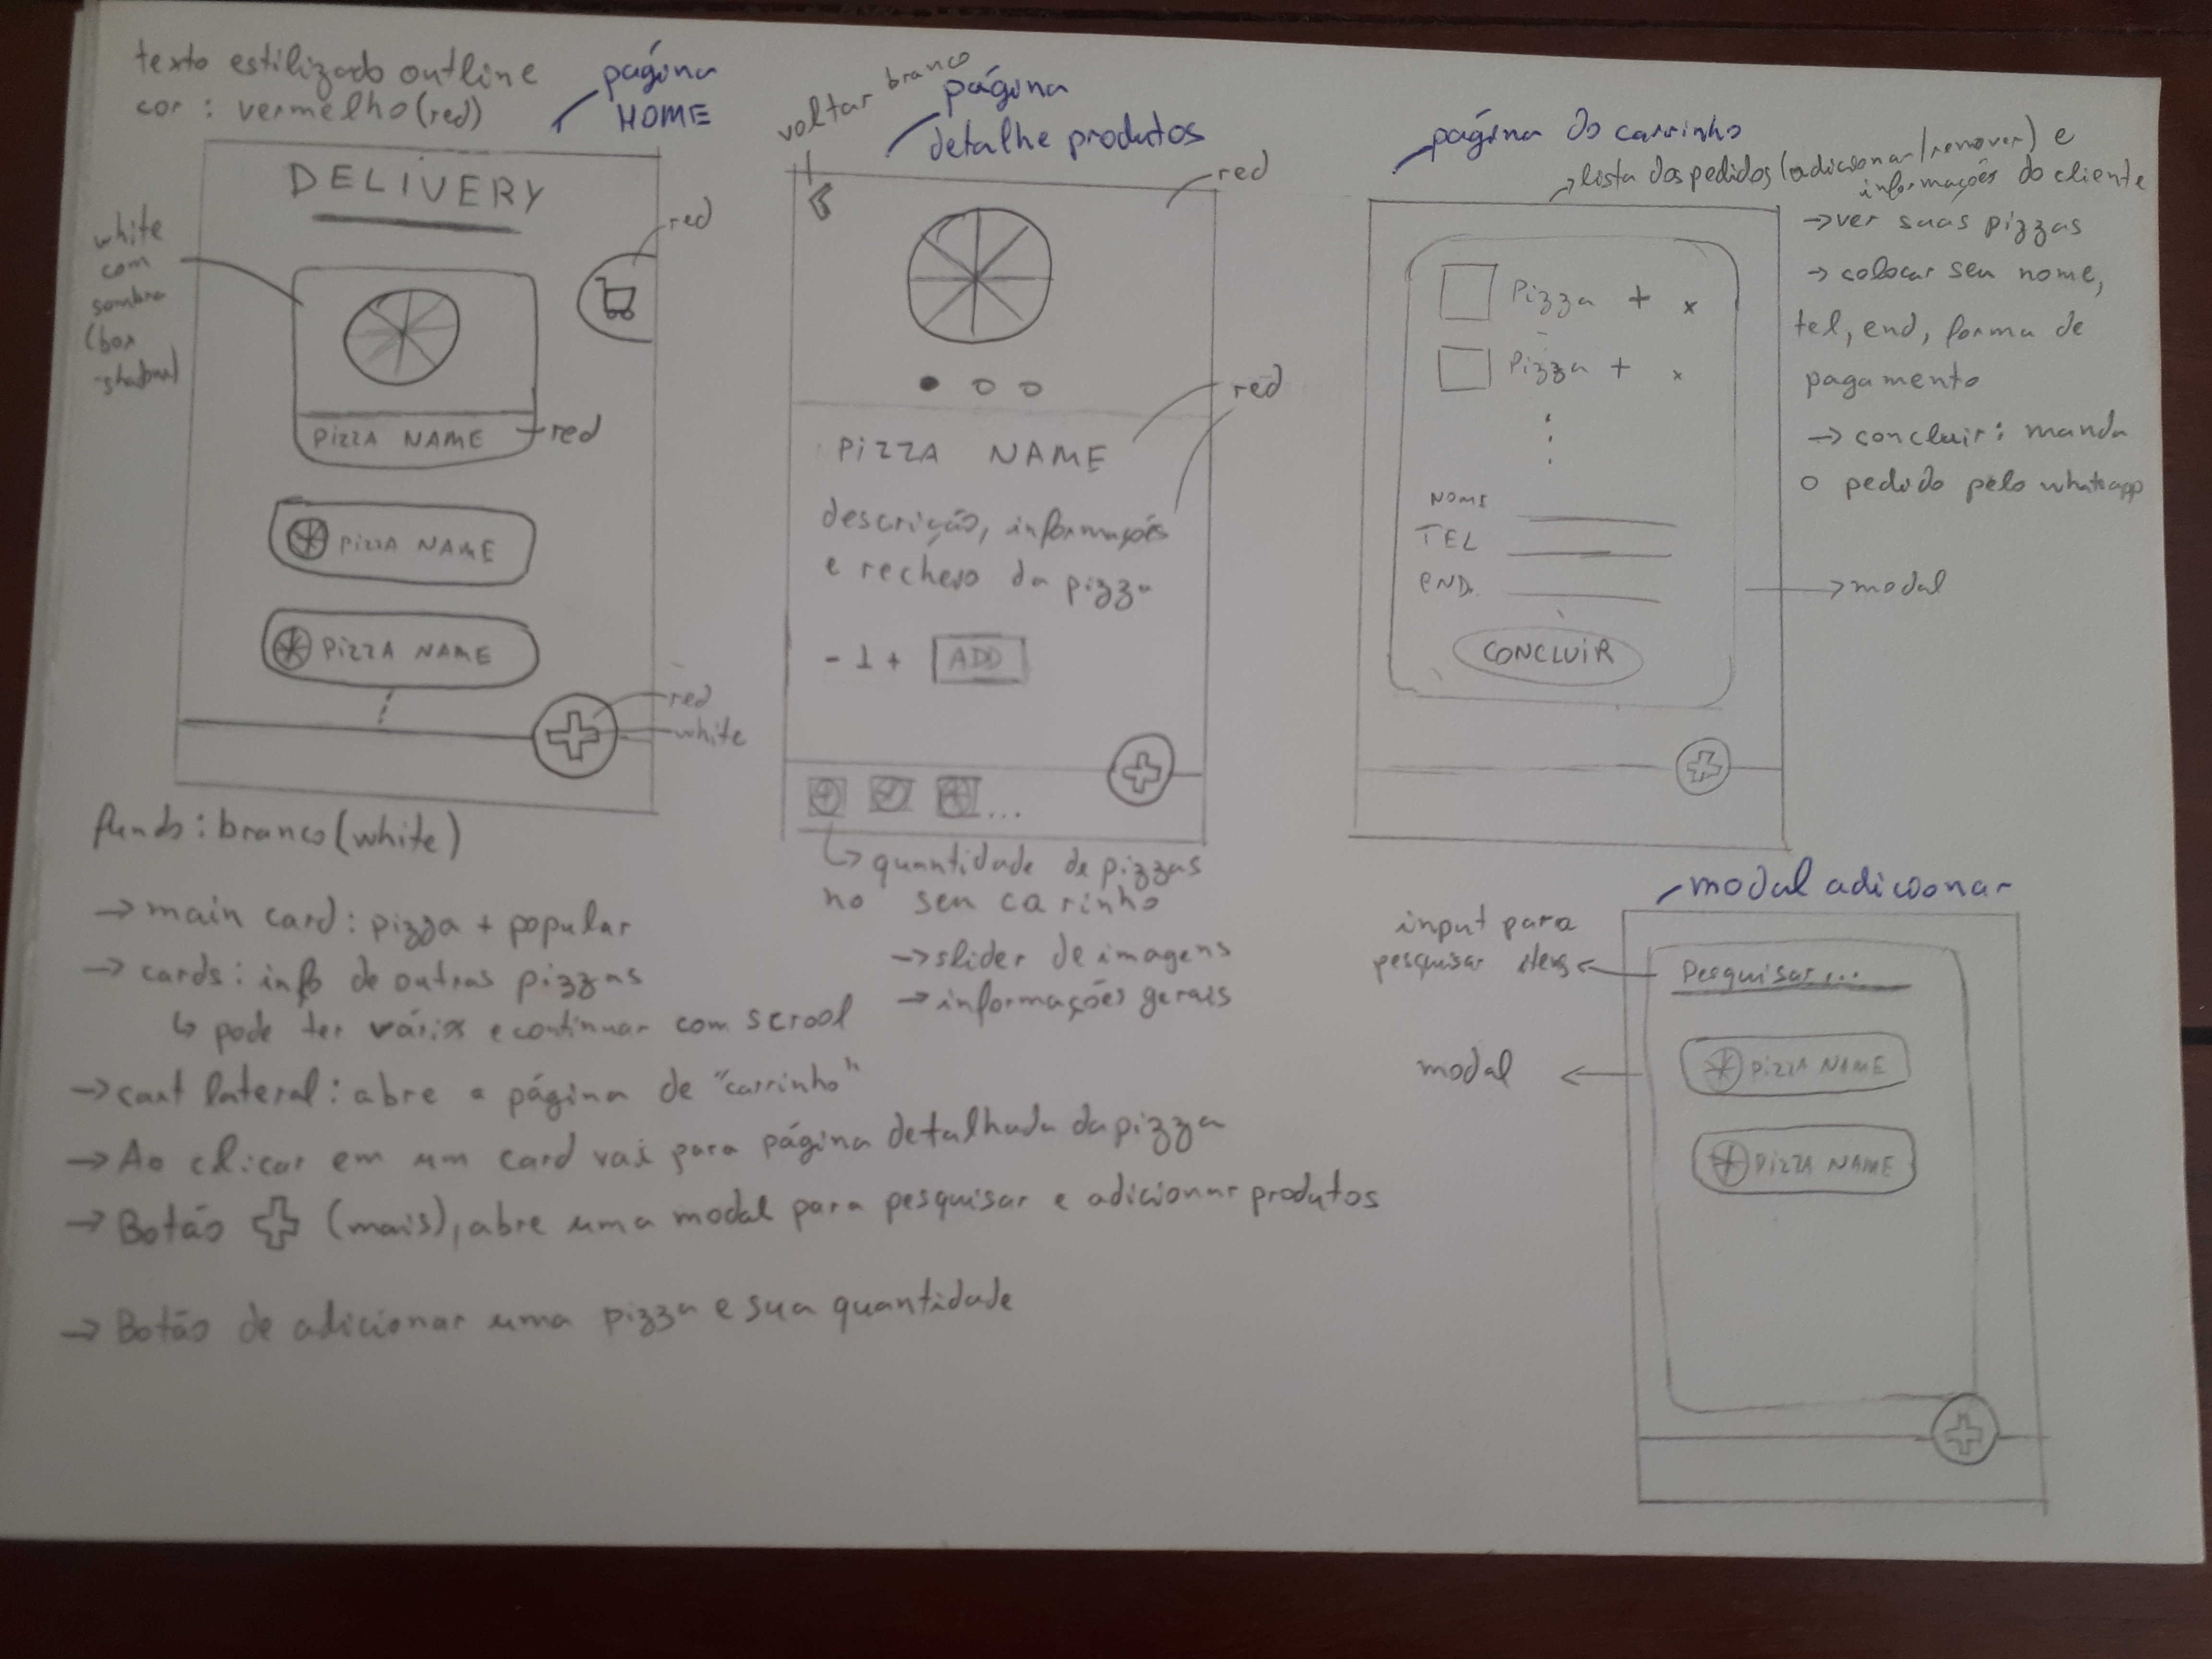 texto estilizado outline
cor : vermelho (red)
página
HOME
DELIVERY
white
com
sombra
(box
-shadow)
red
PIZZA NAME
red
PIZZA NAME
PIZZA NAME
red
white
fundo : branco (white)
→ main card : pizza + popular
→ cards : info de outras pizzas
↳ pode ter vários e continuar com scrool
→ cart lateral : abre a página de "carrinho"
→ Ao clicar em um card vai para página detalhada da pizza
→ Botão + (mais), abre uma modal para pesquisar e adicionar produtos
→ Botão de adicionar uma pizza e sua quantidade
voltar branco
página
detalhe produtos
red
red
PIZZA NAME
descrição, informações
e recheio da pizza
- 1 + ADD
...
↳ quantidade de pizzas
no seu carinho
→ slider de imagens
→ informações gerais
página do carrinho
→ lista dos pedidos (adicionar/remover) e
informações do cliente
→ ver suas pizzas
→ colocar seu nome,
tel, end, forma de
pagamento
→ concluir : manda
o pedido pelo whatsapp
Pizza + x
Pizza + x
NOME
TEL
END.
CONCLUIR
→ modal
modal adicionar
input para
pesquisar itens
Pesquisar...
modal
PIZZA NAME
PIZZA NAME